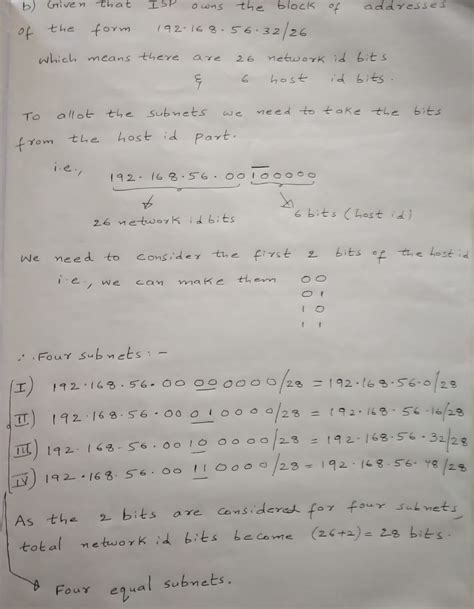 b) Given that ISP owns the block of addresses
of the form 192.168.56.32/26
which means there are 26 network id bits
& 6 host id bits.
To allot the subnets we need to take the bits
from the host id part.
i.e., 192.168.56.00100000
26 network id bits 6 bits (host id)
We need to consider the first 2 bits of the host id
i.e., we can make them 00
01
10
11
∴ Four subnets :-
I) 192.168.56.00000000/28 = 192.168.56.0/28
II) 192.168.56.00010000/28 = 192.168.56.16/28
III) 192.168.56.00100000/28 = 192.168.56.32/28
IV) 192.168.56.00110000/28 = 192.168.56.48/28
As the 2 bits are considered for four subnets,
total network id bits become (26+2)=28 bits.
Four equal subnets.